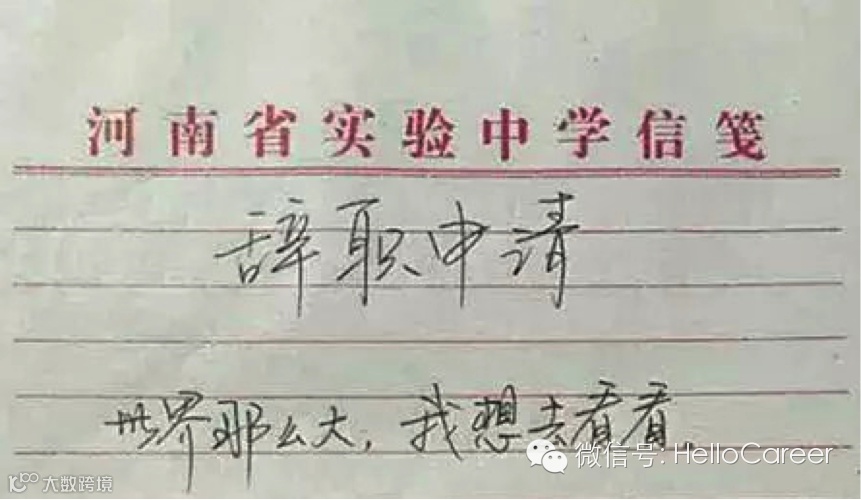 河南省实验中学信笺
辞职申请
世界那么大，我想去看看。
微信号: HelloCareer
大数跨境